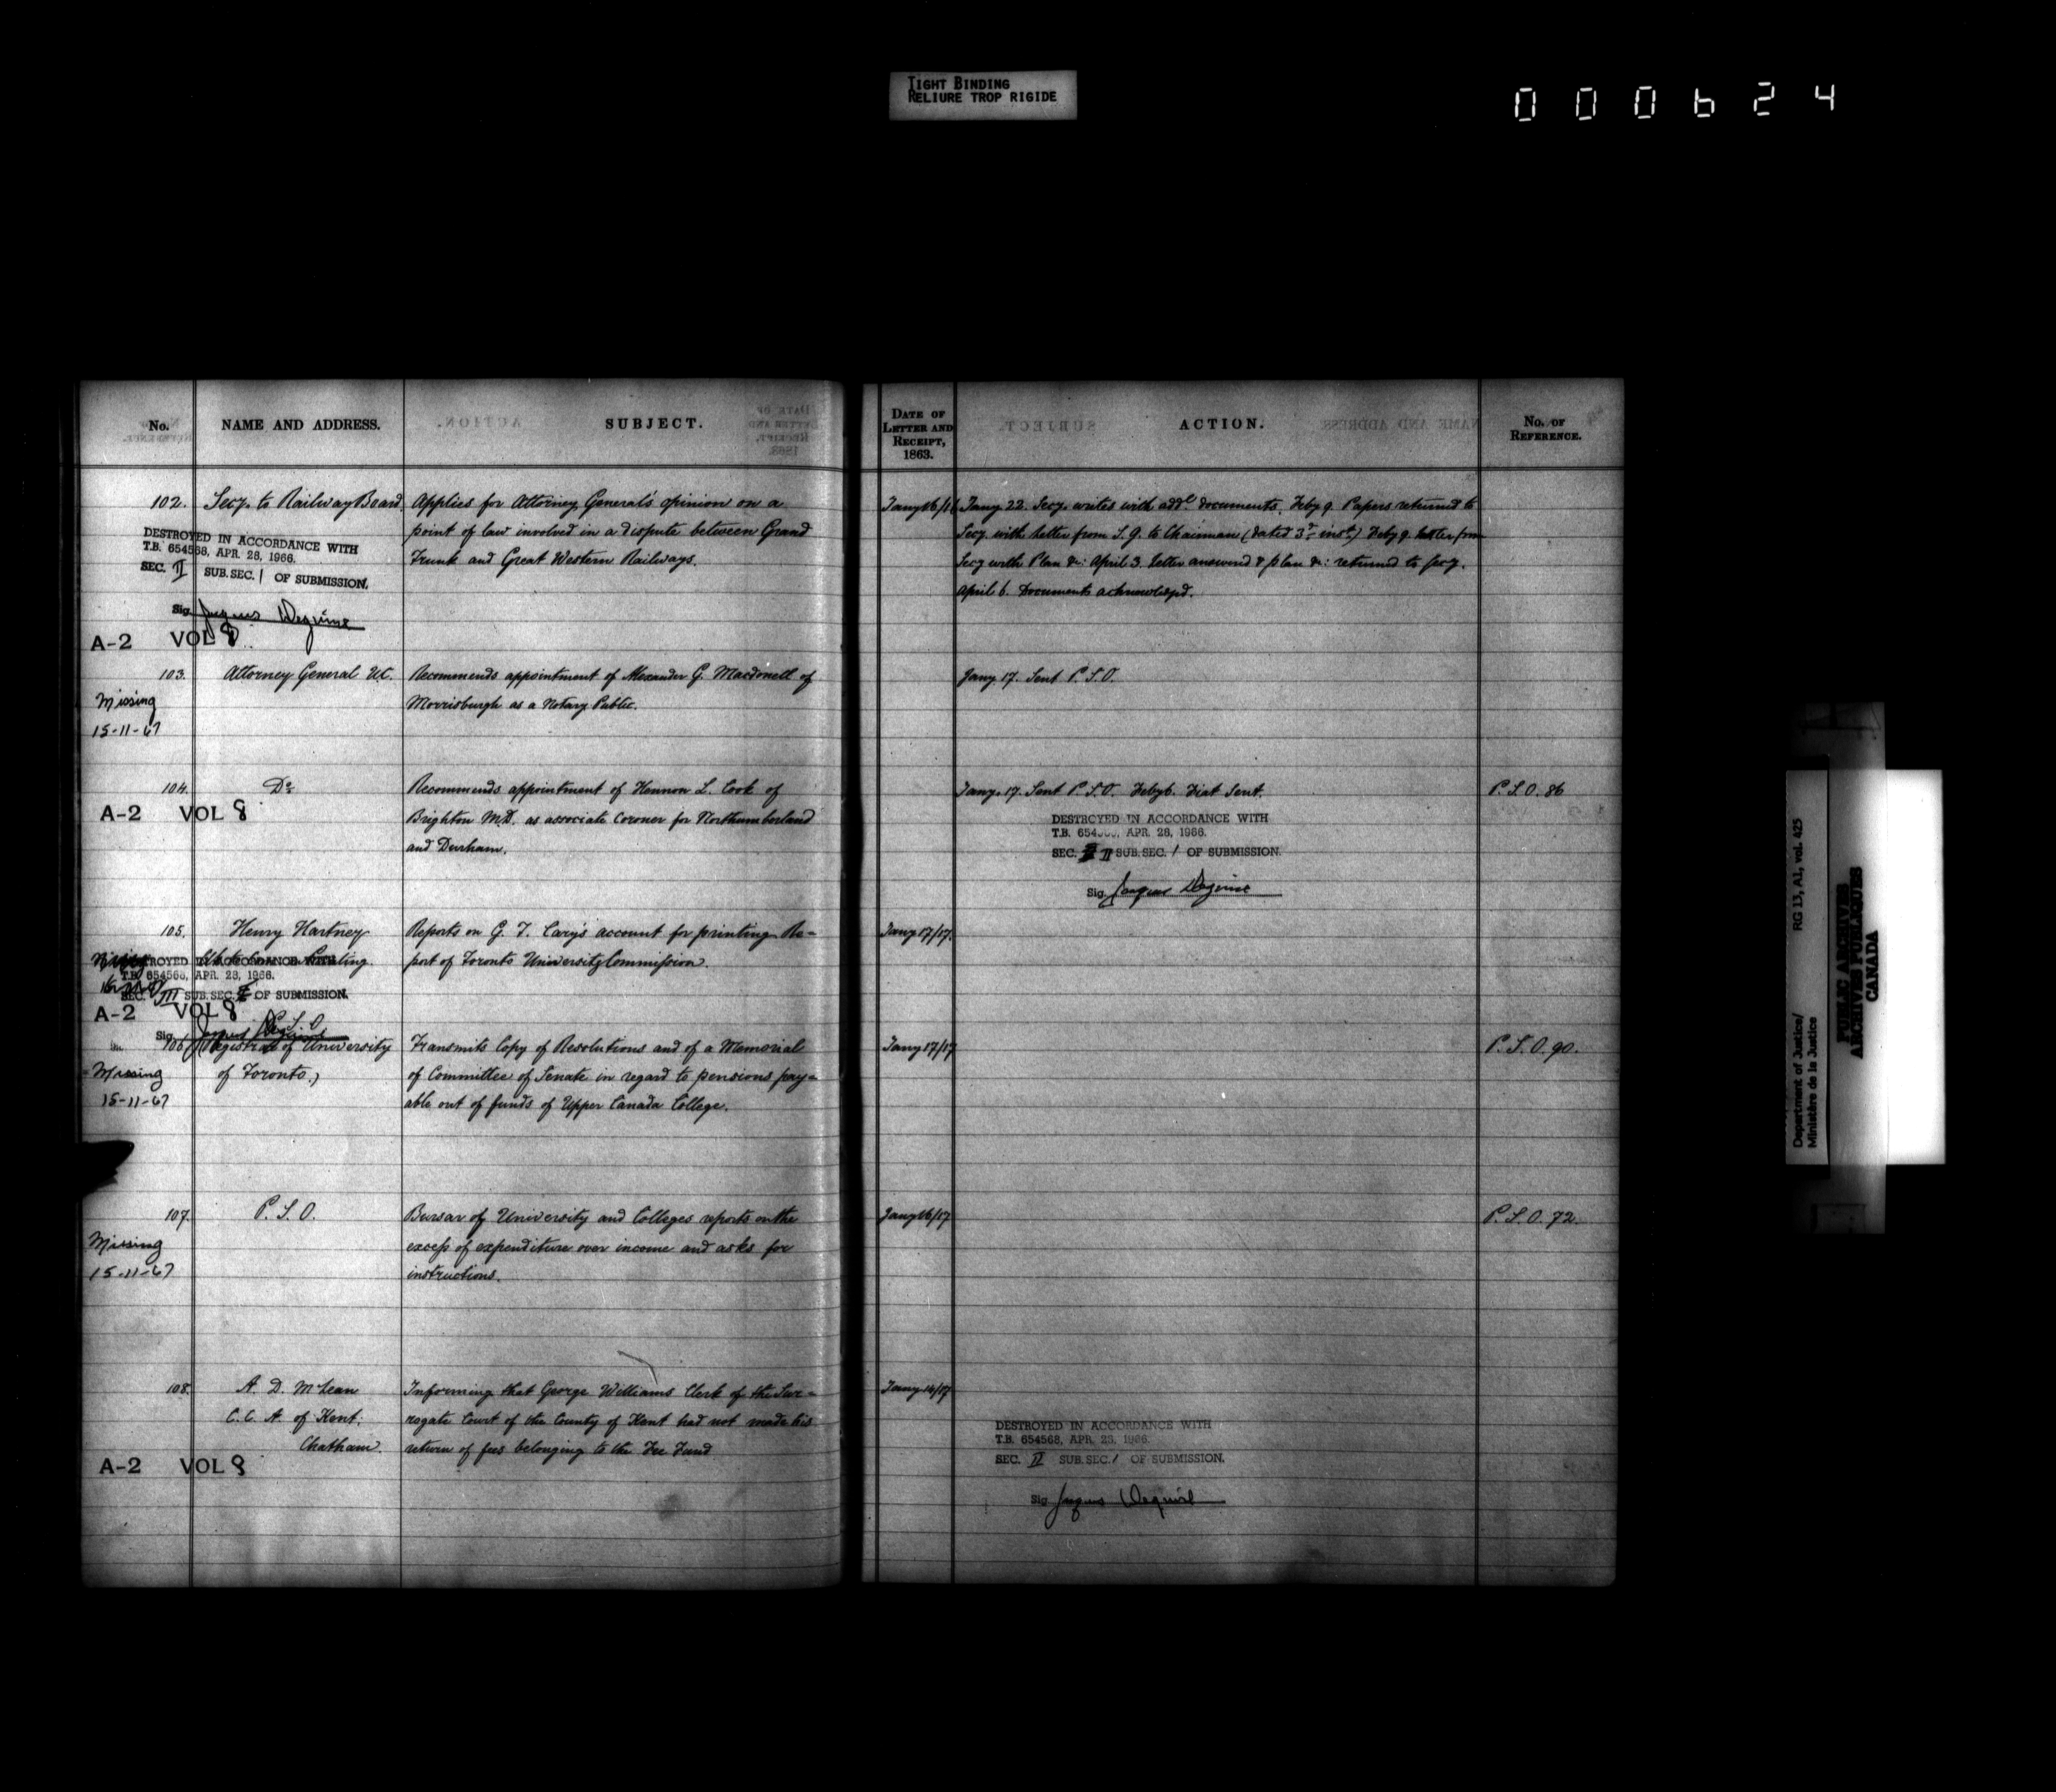 TIGHT BINDING
RELIURE TROP RIGIDE
000624
No.
NAME AND ADDRESS.
SUBJECT.
102.
Secy. to Railway Board
Applies for Attorney General's opinion on a
point of law involved in a dispute between Grand
Trunk and Great Western Railways.
DESTROYED IN ACCORDANCE WITH
T.B. 654568, APR. 28, 1966.
SEC. II SUB. SEC. 1 OF SUBMISSION.
Sig.
A-2 VOL 8
103.
Attorney General U.C.
Recommends appointment of Alexander G. Macdonell of
Morrisburgh as a Notary Public.
Missing
15-11-67
104.
Do
Recommends appointment of Hennon L. Cook of
Brighton M.D. as associate Coroner for Northumberland
and Durham.
A-2 VOL 8
105.
Henry Hartney
Printing.
Reports on G. T. Cary's account for printing Re=
port of Toronto University Commission.
DESTROYED IN ACCORDANCE WITH
T.B. 654568, APR. 28, 1966.
SEC. III SUB. SEC. OF SUBMISSION.
A-2 VOL 8
Sig.
P.S.O
106
(Registrar of University
of Toronto.)
Transmits Copy of Resolutions and of a Memorial
of Committee of Senate in regard to pensions pay=
able out of funds of Upper Canada College.
Missing
15-11-67
107.
P. S. O.
Bursar of University and Colleges reports on the
excess of expenditure over income and asks for
instructions.
Missing
15-11-67
108.
A. D. McLean
C.C.A. of Kent.
Chatham.
Informing that George Williams Clerk of the Sur=
rogate Court of the County of Kent had not made his
return of fees belonging to the Fee Fund
A-2 VOL 8
DATE OF
LETTER AND
RECEIPT,
1863.
ACTION.
No. OF
REFERENCE.
Jany 16/16
Jany. 22. Secy. writes with addl documents. Feby 9. Papers returned to
Secy. with letter from S.G. to Chairman (dated 3d inst.) Feby 9. Letter from
Secy with Plan &c: April 3. Letter answered & plan &c: returned to secy.
April 6. Documents acknowledged.
Jany. 17. Sent P.S.O.
Jany. 17. Sent P.S.O. Feby 6. Fiat Sent.
P.S.O. 86
DESTROYED IN ACCORDANCE WITH
T.B. 654568, APR. 28, 1966.
SEC. II SUB. SEC. 1 OF SUBMISSION.
Sig.
Jany 17/17.
Jany 17/17
P.S.O. 90.
Jany 16/17
P.S.O. 72.
Jany 14/17
DESTROYED IN ACCORDANCE WITH
T.B. 654568, APR. 28, 1966.
SEC. II SUB. SEC. 1 OF SUBMISSION.
Sig.
Department of Justice/
Ministère de la Justice
RG 13, A1, vol. 425
PUBLIC ARCHIVES
ARCHIVES PUBLIQUES
CANADA